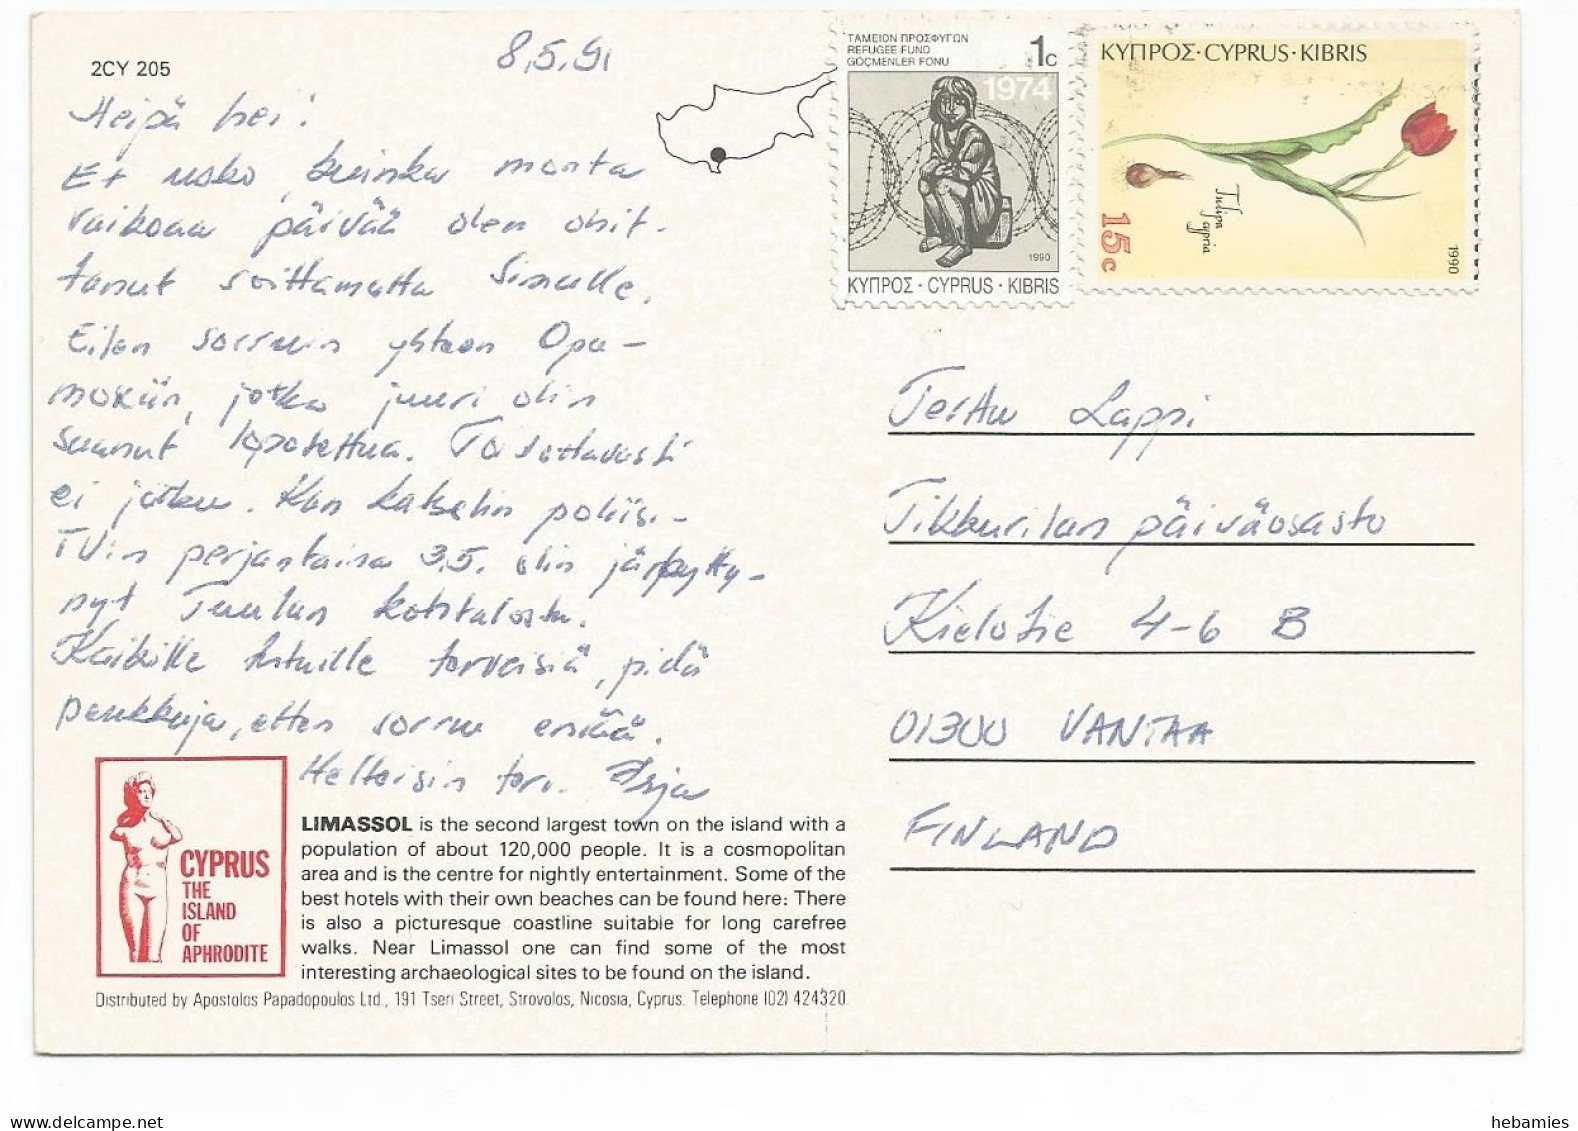 2CY 205
8.5.91
Heipä hei!
Et usko, kuinka monta
vaikeaa päivää olen ohit-
tanut soittamatta Sinulle.
Eilen sorruin yhteen Opa-
moxiin, jotka juuri olin
saanut lopetettua. Toivottavasti
ei jatku. Kun katselin poliisi-
TV:n perjantaina 3.5. olin järkytty-
nyt Tuulan kohtalosta.
Kaikille tutuille terveisiä, pidä
peukkuja, etten sorru enää.
Helteisin terv. Irja
ΤΑΜΕΙΟΝ ΠΡΟΣΦΥΓΩΝ
REFUGEE FUND
GÖÇMENLER FONU
1c
1974
1990
ΚΥΠΡΟΣ · CYPRUS · KIBRIS
ΚΥΠΡΟΣ · CYPRUS · KIBRIS
Tulipa
cypria
15c
1990
Lappi
Tikkurilan päiväosasto
Kielotie 4-6 B
01300 VANTAA
FINLAND
CYPRUS
THE
ISLAND
OF
APHRODITE
LIMASSOL is the second largest town on the island with a
population of about 120,000 people. It is a cosmopolitan
area and is the centre for nightly entertainment. Some of the
best hotels with their own beaches can be found here: There
is also a picturesque coastline suitable for long carefree
walks. Near Limassol one can find some of the most
interesting archaeological sites to be found on the island.
Distributed by Apostolos Papadopoulos Ltd., 191 Tseri Street, Strovolos, Nicosia, Cyprus. Telephone (02) 424320
hebamies.ecrater.com
hebamies